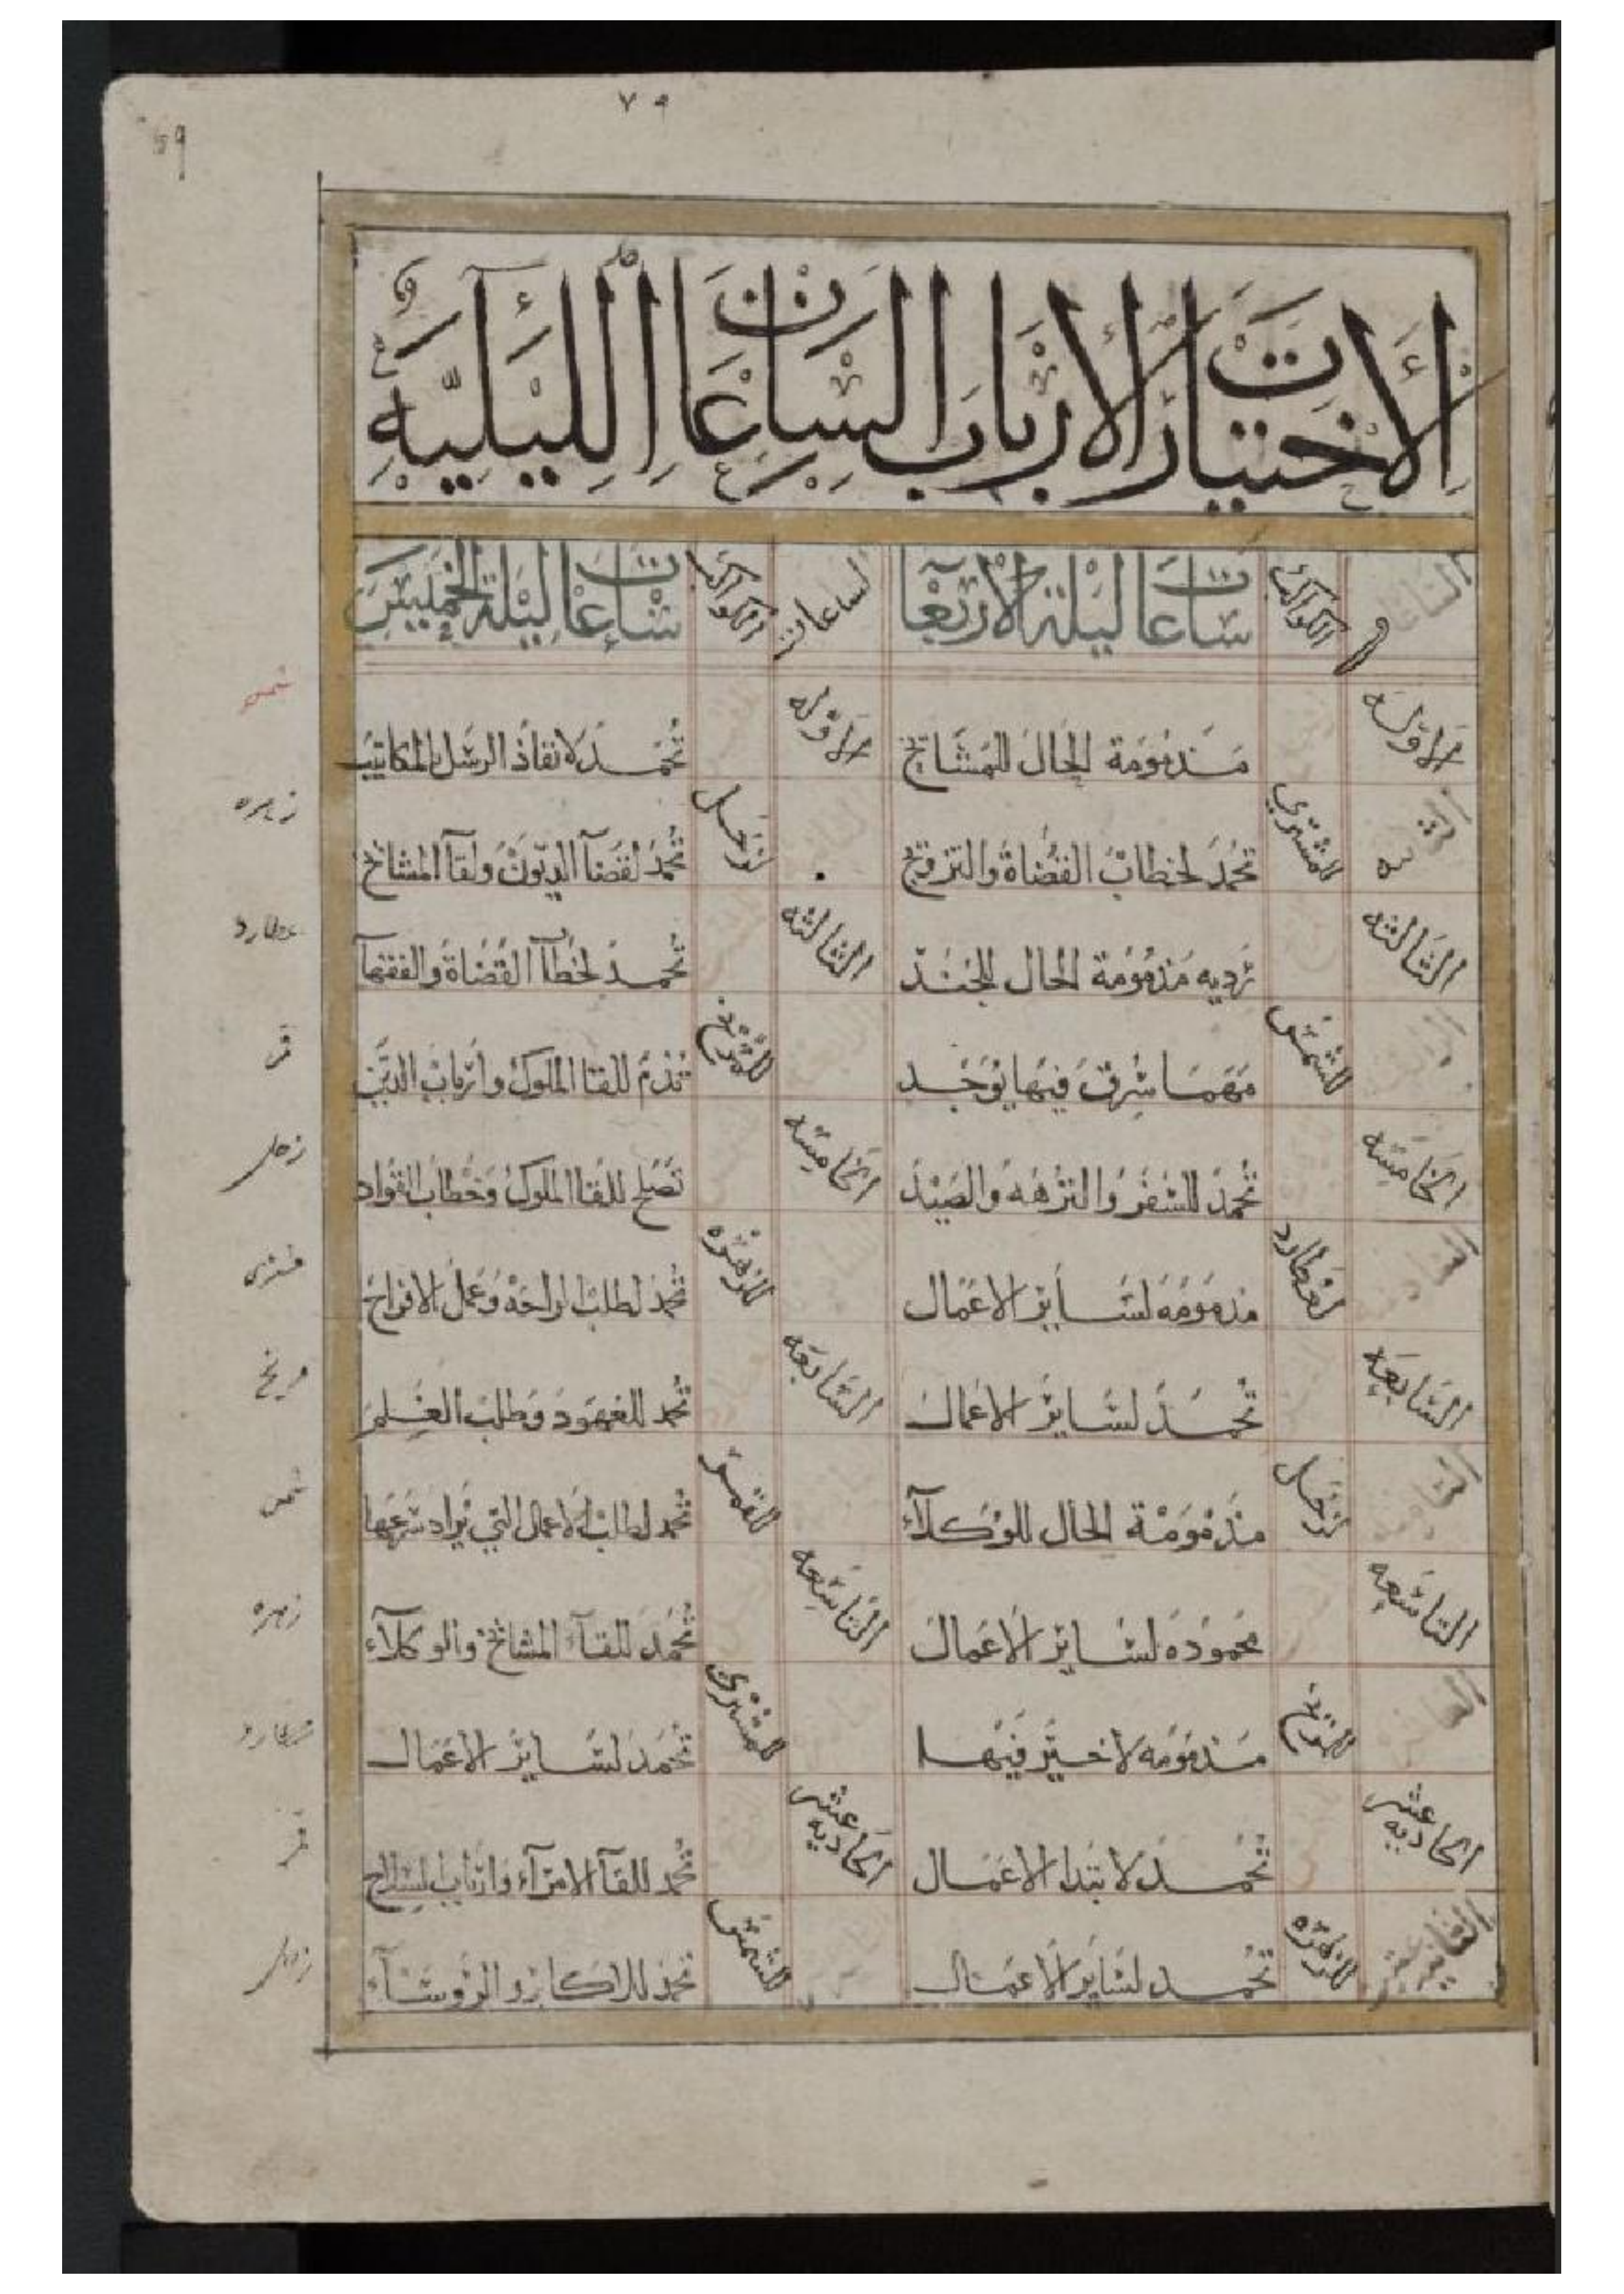 ٧٩
69
الاختيارات لارباب الساعات الليليه
الساعات الكواكب ساعات ليلة الاربعا الساعات الكواكب ساعات ليلة الخميس
الاوله مذمومة الحال للمشايخ الاوله تحمد لانفاذ الرسل والمكاتيب شمس
للمشترى تحمد لخطاب القضاة والتزويج لزحل تحمد لقضآ الديون ولقآ المشايخ زهره
الثالثه رديه مذمومة الحال للجند الثالثه تحمد لخطاب القضاة والفقهآ عطارد
للشمس مهما سرق فيها يوجد للمريخ تذم للقا الملوك وارباب الدين قمر
الخامسه تحمد للسفر والنزهه والصيد الخامسه تصلح للقا الملوك وخطاب القواد زحل
لعطارد مذمومه لساير الاعمال للزهره تحمد لطلب الراحه وعمل الافراح مشترى
السابعه تحمد لساير الاعمال السابعه تحمد للعهود وطلب العلم مريخ
لزحل مذمومة الحال للوكلآء للقمر تحمد لطلب الاعمال التي يراد سرعتها شمس
التاسعه محموده لساير الاعمال التاسعه تحمد للقآء المشايخ والوكلآء زهره
للمريخ مذمومه لا خير فيها للمشترى تحمد لساير الاعمال عطارد
الحاديه عشر تحمد لابتدا الاعمال الحاديه عشر تحمد للقآ الامرآء وارباب السلاح قمر
الثانيه عشر للزهره تحمد لساير الاعمال للشمس تحمد للاكابر والروسآء زحل